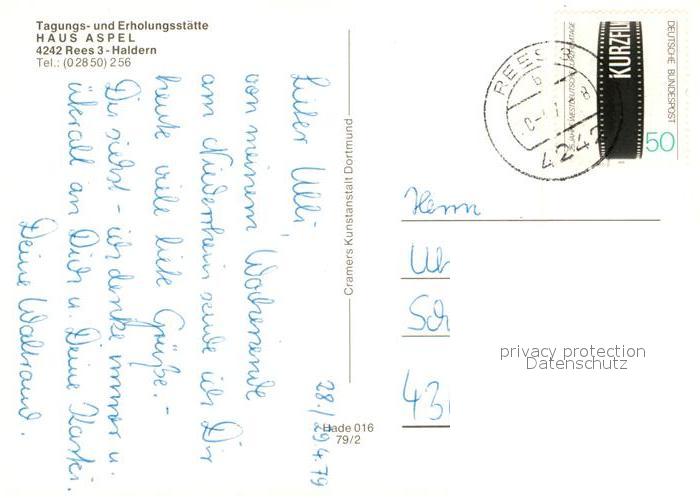 Tagungs- und Erholungsstätte
HAUS ASPEL
4242 Rees 3 - Haldern
Tel.: (0 28 50) 2 56
28./29.4.79
Lieber Ulli,
von meinem Wochenende
am Niederrhein sende ich Dir
heute viele liebe Grüße. -
Du siehst - ich denke immer u.
überall an Dich u. Deine Karten.
Deine Waltraud.
Cramers Kunstanstalt Dortmund
Hade 016
79/2
REES
4242
25 JAHRE WESTDEUTSCHE KURZFILMTAGE
KURZFIL
DEUTSCHE BUNDESPOST
50
Herrn
Ul
Sch
43
privacy protection
Datenschutz